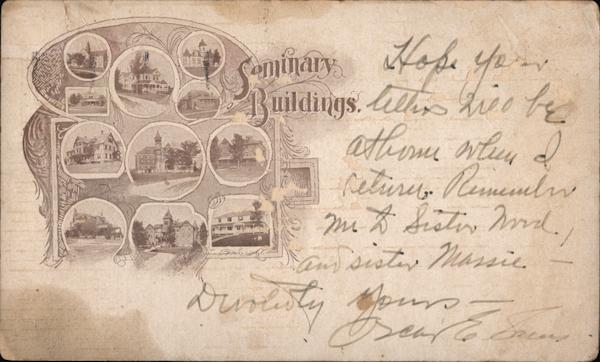 Seminary
Buildings.
Hope your
letters will be
at home when I
return. Remember
me to Sister Wood,
and sister Massie —
Devotedly yours —
Oscar E.